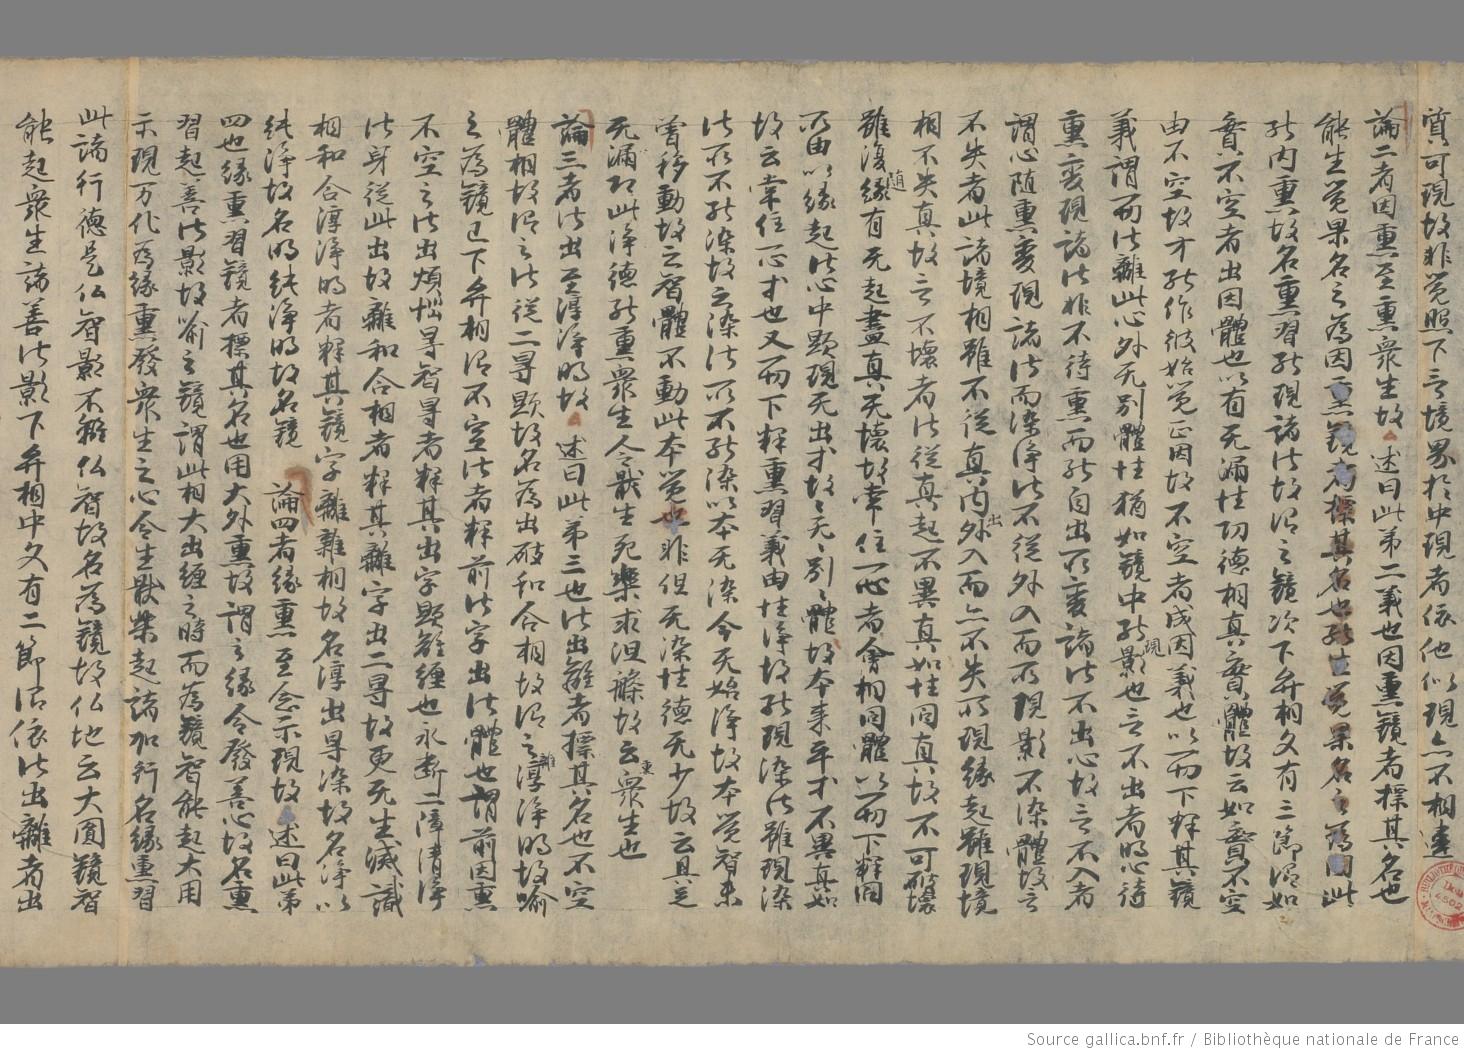 質可現故非覺照下言境界於中現者依他似現亦不相違
論二者因熏至熏衆生故 述曰此第二義也因熏鏡者標其名也
能生覺果名之為因熏鏡者標其名也能生覺果名之為因此
於內熏故名熏習能現諸法故謂之鏡次下弁相文有三節謂如
實不空者出因體也以有无漏性功德相真實體故云如實不空
由不空故才能作彼始覺正因故不空者成因義也以一切下釋其鏡
義謂一切法離此心外无別體性猶如鏡中能現影也言不出者明心待
熏變現諸法非不待熏而能自出所變諸法不出心故言不入者
謂心隨熏變現諸法而染淨法不從外入而所現影不染體故言
不失者此諸境相雖不從真內出外入而亦不失所現緣起雖現境
相不失真故言不壞者法從真起不異真如性同真故不可破壞
雖復隨緣有无起盡真无壞故常住一心者會相同體以一切下釋同
所由以緣起法心中顯現无出才故々无々別々體故本來平才不異真如
故云常住一心才也又一切下釋熏習義由性淨故能現染法雖現染
法而不能染故云染法所不能染以本无染今无始淨故本覺智未
曾移動故云智體不動此本覺也非但无染性德无少故云具足
无漏即此淨德能熏衆生令厭生死樂求涅槃故云熏衆生也
論三者法出至淳淨明故 述曰此第三也法出離者標其名也不空
體相故謂之法從二㝵顯故名為出破和合相故謂之離淳淨明故喻
之為鏡已下弁相謂不空法者釋前法字出法體也謂前因熏
不空之法出煩惱㝵智㝵者釋其出字顯離纏也永斷二障清淨
法身從此出故離和合相者釋其離字出二㝵故更无生滅識
相和合淳淨明者釋其鏡字離雜相故名淳出㝵染故名淨以
純淨故名明純淨明故名鏡 論四者緣熏至念示現故 述曰此第
四也緣熏習鏡者標其名也用大外熏故謂之緣令發善心故名熏
習起善法影故喻之鏡謂此相大出纏之時而為鏡智能起大用
示現万化為緣熏發衆生之心令生猒樂起諸加行名緣熏習
此諸行德是仏智影不離仏智故名為鏡故仏地云大圓鏡智
能起衆生諸善法影下弁相中文有二節謂依法出離者出
Source gallica.bnf.fr / Bibliothèque nationale de France